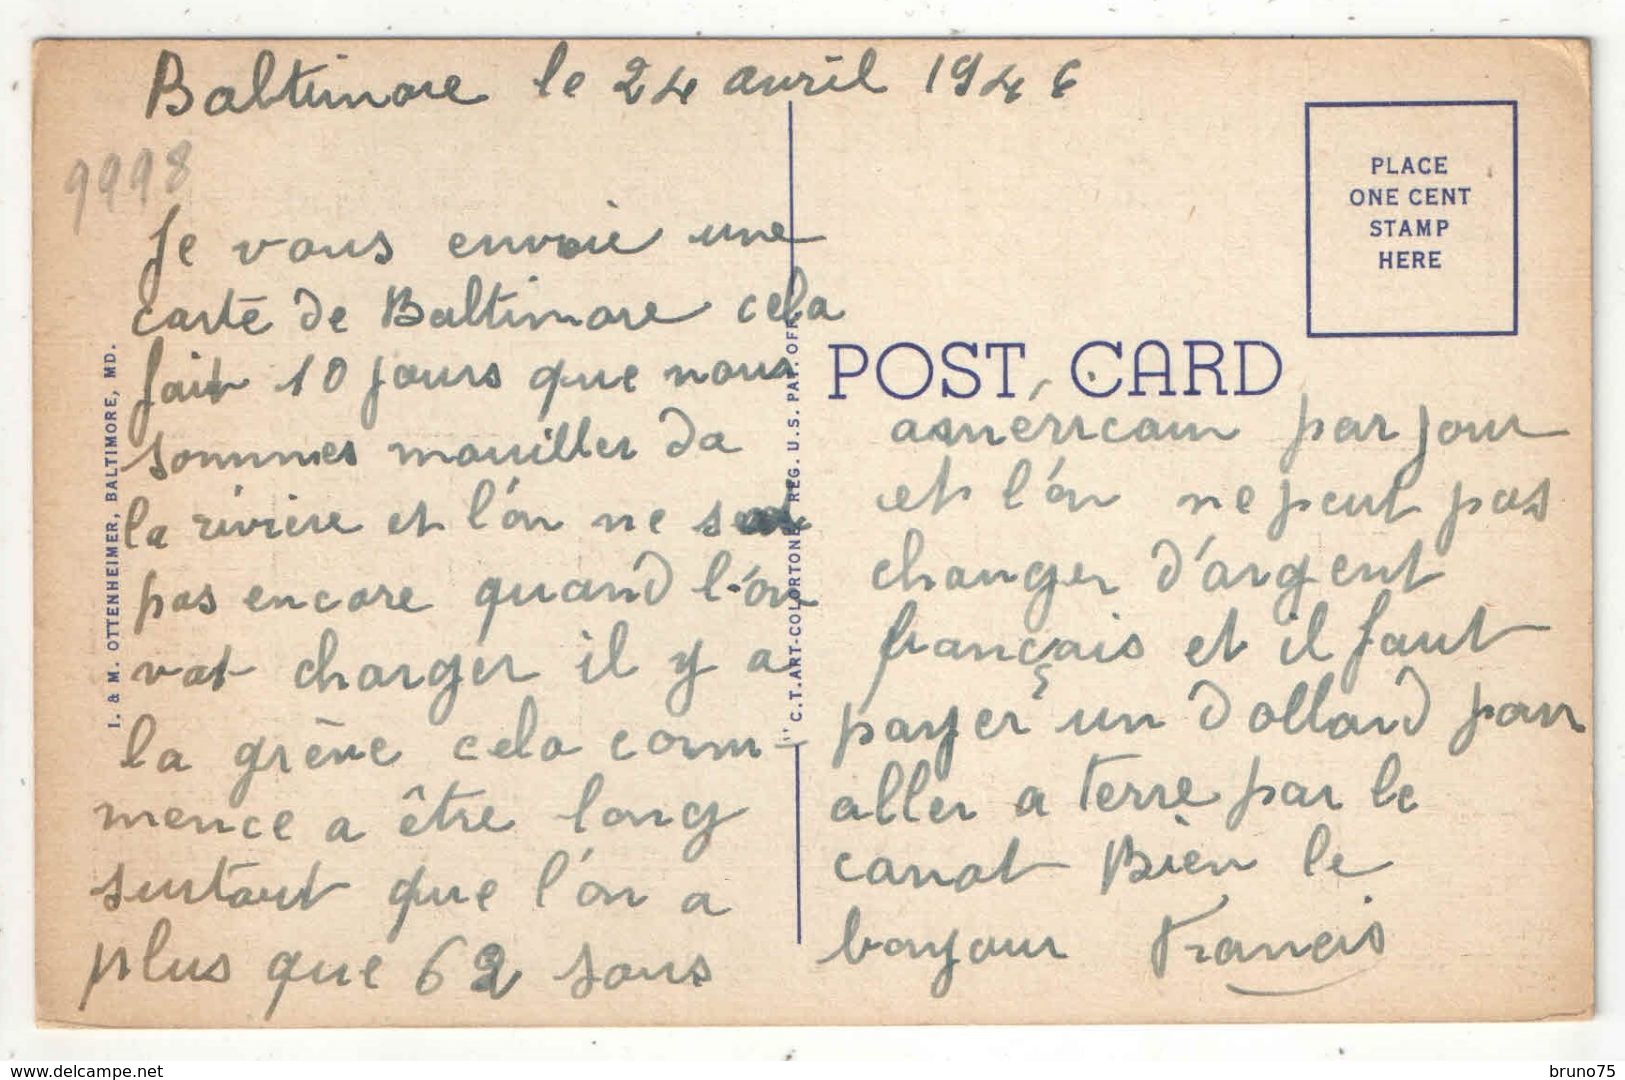 Baltimore le 24 avril 1946
9998
Je vous envoie une
carte de Baltimore cela
fait 10 jours que nous
sommes mouiller da
la rivière et l'on ne
pas encore quand l'on
vat charger il y a
la grève cela com-
mence a être long
surtout que l'on a
plus que 62 sous
américain par jour
et l'on ne peut pas
changer d'argent
français et il faut
payer un dollard pour
aller a terre par le
canot Bien le
bonjour Francis
PLACE
ONE CENT
STAMP
HERE
POST CARD
I. & M. OTTENHEIMER, BALTIMORE, MD.
"C.T. ART-COLORTONE" REG. U.S. PAT. OFF.
delcampe.net
bruno75